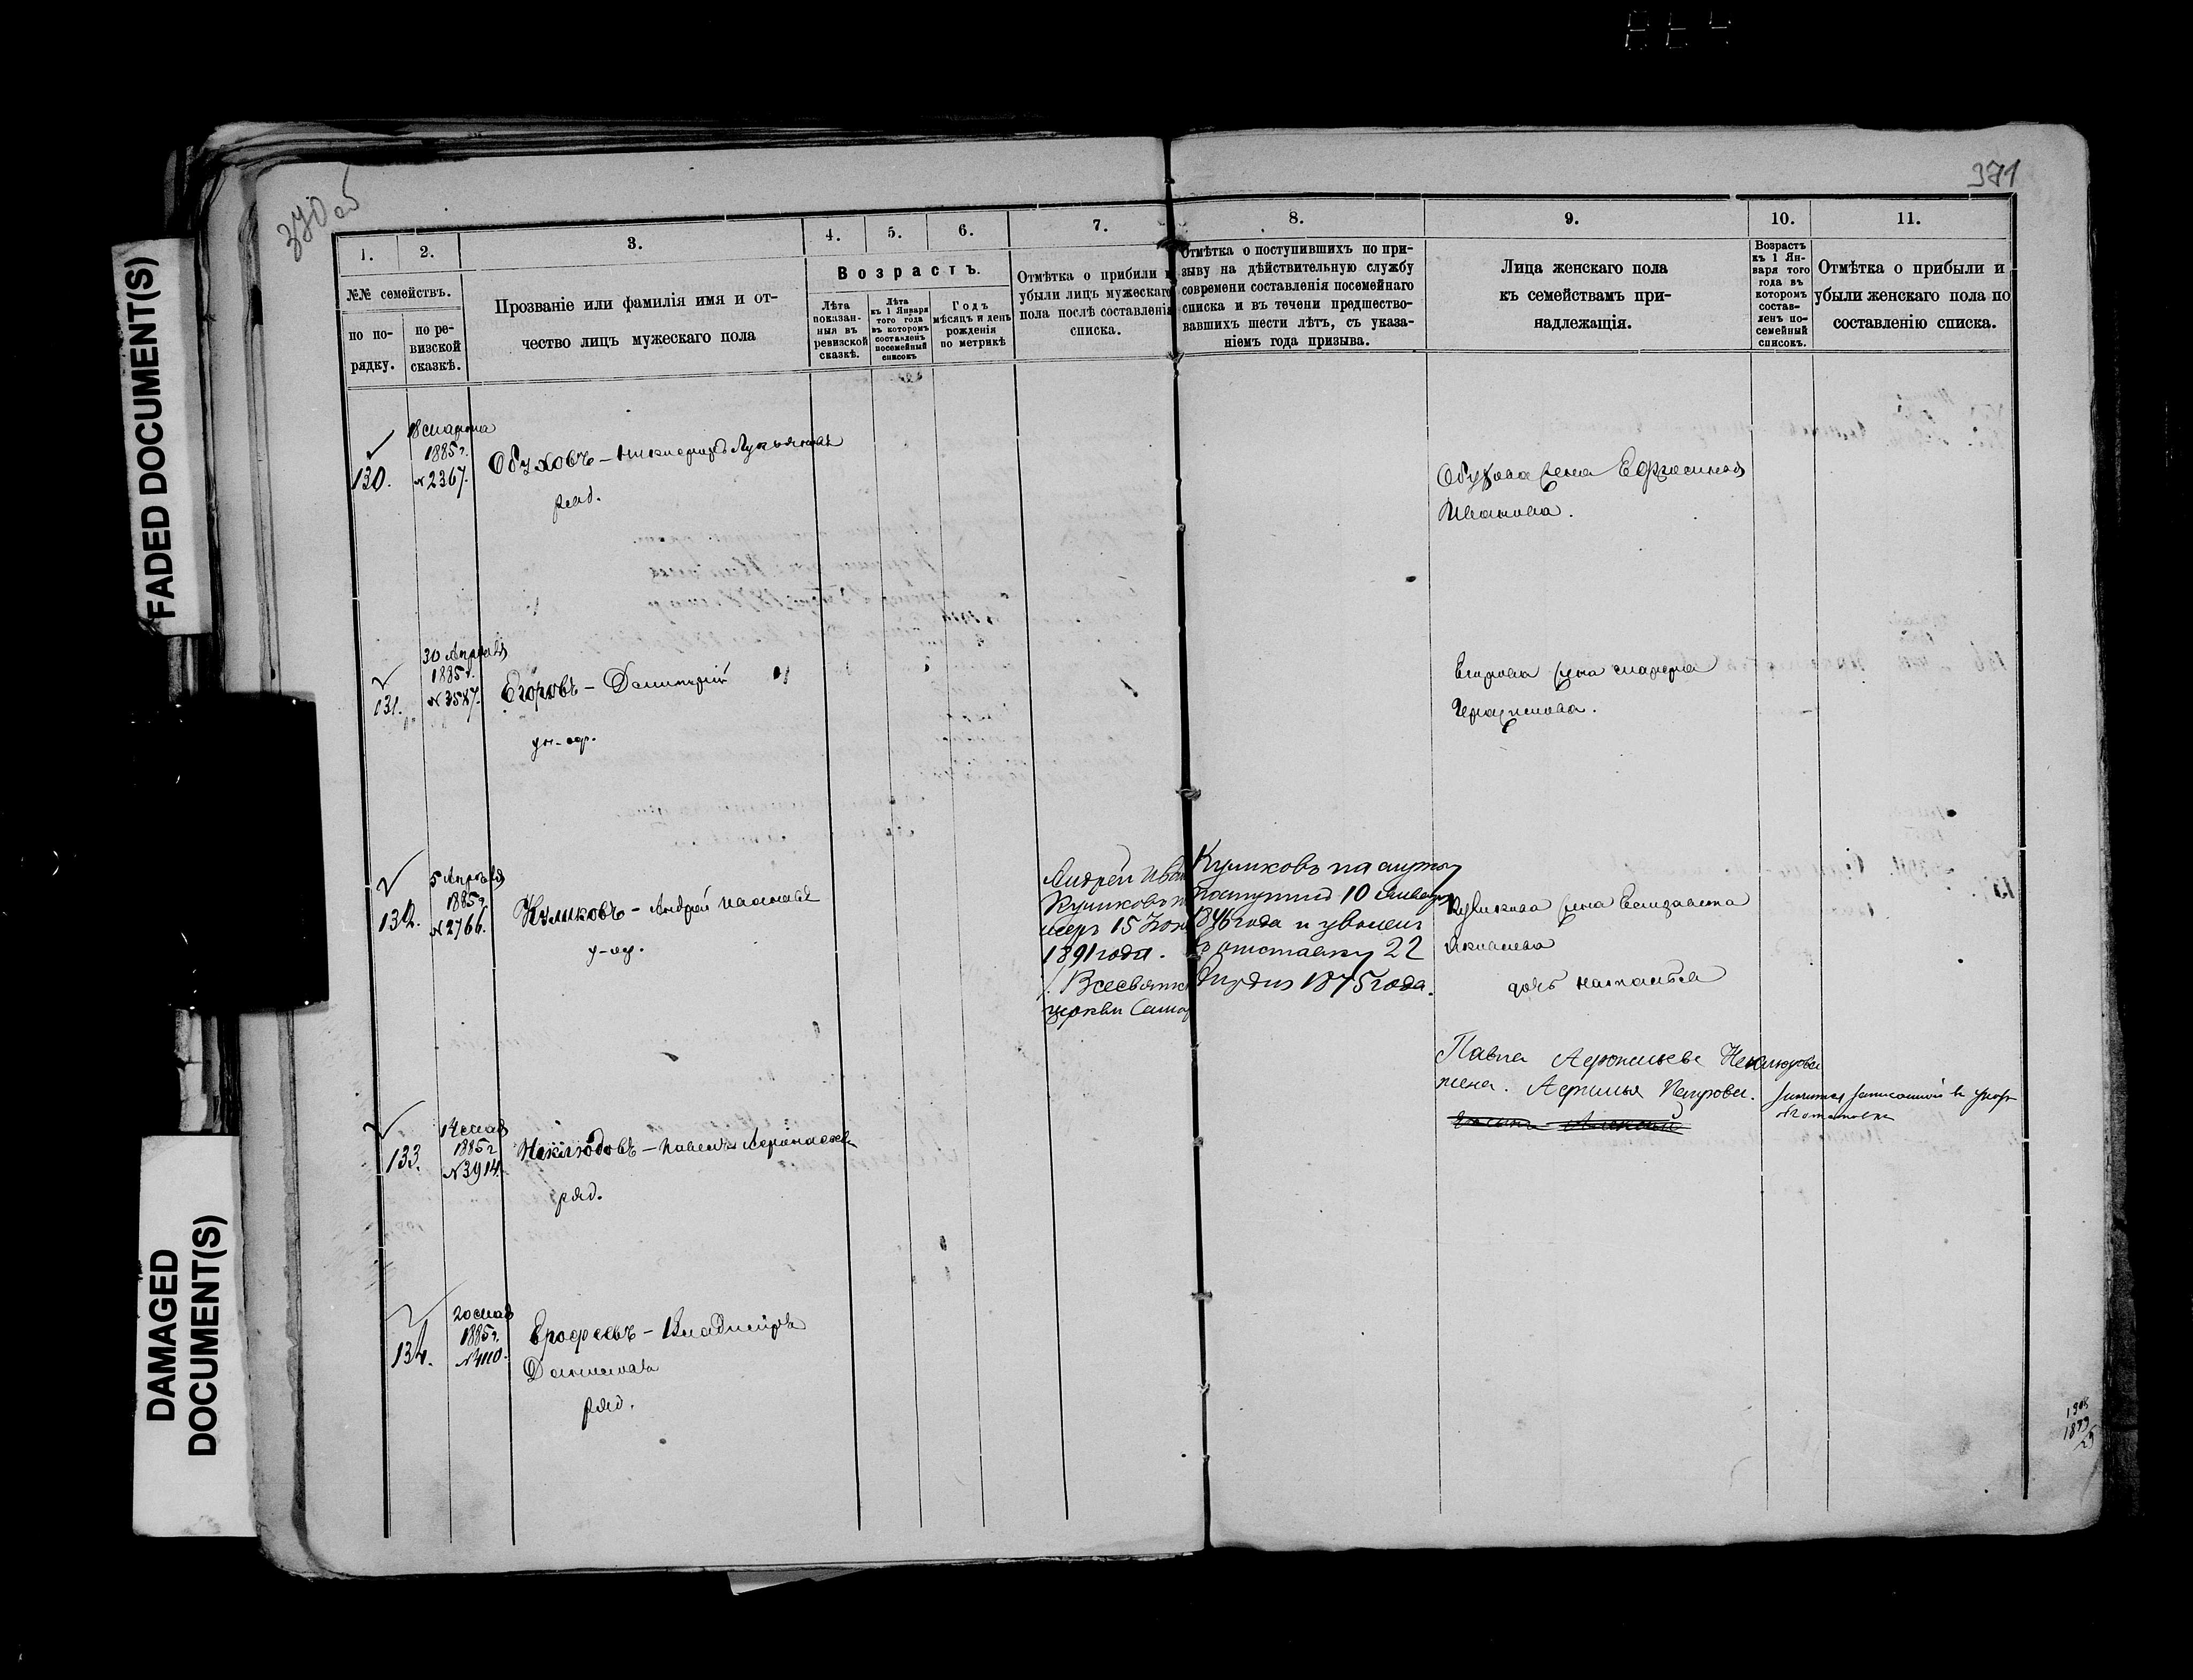 FADED DOCUMENT(S)
DAMAGED
DOCUMENT(S)
370 об
371
1.
2.
3.
4.
5.
6.
7.
8.
9.
10.
11.
№№ семействъ.
по по-
рядку.
по ре-
визской
сказкѣ.
Прозваніе или фамилія имя и от-
чество лицъ мужескаго пола
Возрастъ.
Лѣта
показан-
ныя въ
ревизской
сказкѣ.
Лѣта
къ 1 Января
того года
въ которомъ
составленъ
посемейный
списокъ
Годъ
мѣсяцъ и день
рожденія
по метрикѣ
Отмѣтка о прибыли и
убыли лицъ мужескаго
пола послѣ составленія
списка.
Отмѣтка о поступившихъ по при-
зыву на дѣйствительную службу
современи составленія посемейнаго
списка и въ течени предшество-
вавшихъ шести лѣтъ, съ указа-
ніемъ года призыва.
Лица женскаго пола
къ семействамъ при-
надлежащія.
Возрастъ
къ 1 Ян-
варя того
года въ
которомъ
состав-
ленъ по-
семейный
списокъ.
Отмѣтка о прибыли и
убыли женскаго пола по
составленію списка.
130.
18 марта
1885 г.
№ 2367.
Обуховъ – Лукьяновъ
ряд.
Обухова жена Ефросинья
Иванова.
131.
30 Апрѣля
1885 г.
№ 3587.
Егоровъ – Дмитрій
ун-оф.
Егорова жена
132.
5 Апрѣля
1885 г.
№ 2766.
Куликовъ – Андрей Ивановъ
у-оф.
Андрей Иван
Куликовъ
умеръ 15
1891 года.
Всесвятск
церкви Самар
Куликовъ на службу
поступилъ 10 Января
1846 года и уволенъ
в отставку 22
1875 года.
Куликова жена Елизавета
дочь Наталья
133.
14 мая
1885 г.
№ 3914.
Неклюдовъ – Павелъ Афанасьевъ
ряд.
Павла Афонасьева Неклюдова
жена. Петрова.
134.
20 мая
1885 г.
№ 4110.
Ерофеевъ – Владиміръ
Даниловъ
ряд.